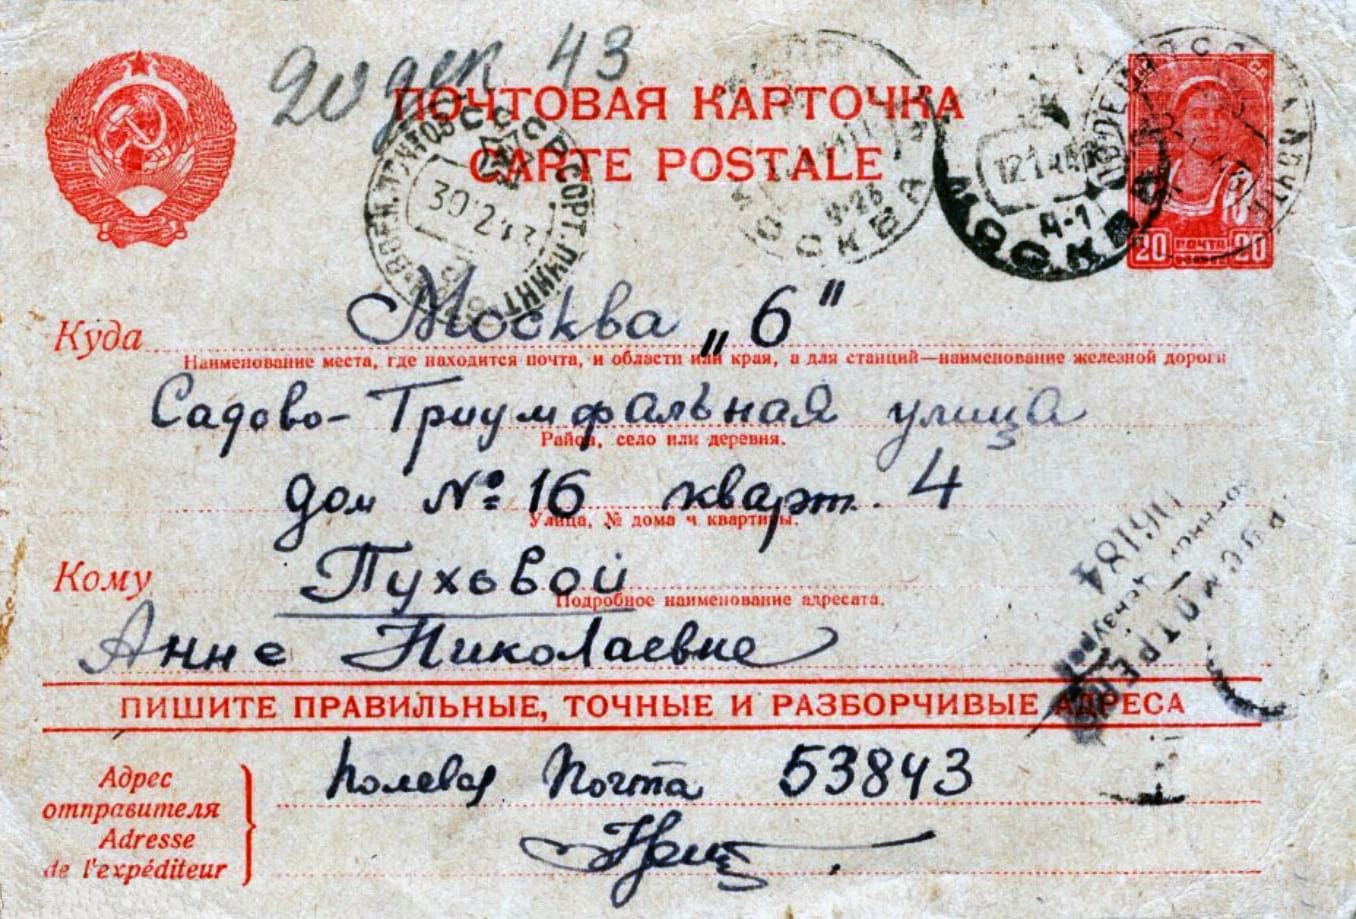 20 дек 43
ПОЧТОВАЯ КАРТОЧКА
CARTE POSTALE
30 12 43
Ч-23
МОСКВА
12 1 44
Ч-1
МОСКВА
20 ПОЧТА 20
Куда Москва „6"
Наименование места, где находится почта, и области или края, а для станций—наименование железной дороги
Садово-Триумфальная улица
Район, село или деревня.
дом № 16 кварт. 4
Улица, № дома и квартиры.
Кому Пуховой
Подробное наименование адресата.
Анне Николаевне
06184
ПРОСМОТРЕНО
ПИШИТЕ ПРАВИЛЬНЫЕ, ТОЧНЫЕ И РАЗБОРЧИВЫЕ АДРЕСА
Адрес
отправителя
Adresse
de l'expéditeur
Полевая Почта 53843